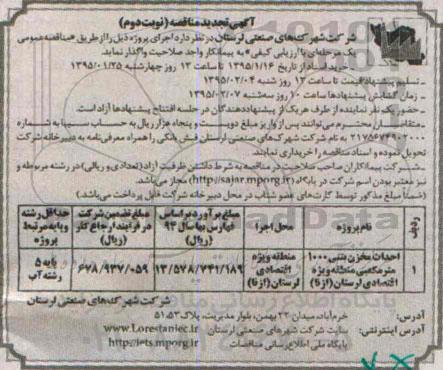 آگهی تجدید مناقصه (نوبت دوم)
شرکت شهرک‌های صنعتی لرستان در نظر دارد اجرای پروژه ذیل را از طریق «مناقصه عمومی
یک مرحله‌ای با ارزیابی کیفی» به پیمانکار واجد صلاحیت واگذار نماید.
خرید اسناد از تاریخ ۱۳۹۵/۱/۱۶ تا ساعت ۱۳ روز چهارشنبه ۱۳۹۵/۰۱/۲۵
ـ تسلیم پیشنهاد قیمت تا ساعت ۱۳ روز شنبه ۱۳۹۵/۰۲/۰۴
ـ زمان گشایش پیشنهادها ساعت ۱۰ روز سه‌شنبه ۱۳۹۵/۰۲/۰۷
ـ حضور یک نفر نماینده از طرف هر یک از پیشنهاددهندگان در جلسه افتتاح پیشنهادها آزاد است.
ـ متقاضیان محترم می‌توانند پس از واریز مبلغ دویست و پنجاه هزار ریال به حساب سیبا به شماره
۲۱۷۵۶۷۴۹۰۲۰۰۰ به نام شرکت شهرک‌های صنعتی لرستان فیش بانکی را همراه معرفی‌نامه به دبیرخانه شرکت
تحویل نموده و اسناد مناقصه را خریداری نمایند.
ـ شرکت پیمانکاران صاحب صلاحیت در مناقصه به شرط داشتن ظرفیت آزاد (تعدادی و ریالی) در رشته مربوطه و
نیز معتبر بودن اسم شرکت در پایگاه (http://sajar.mporg.ir) مجاز می‌باشد.
(ضمناً مبلغ مذکور توسط کارت‌های عضو شتاب در محل دبیرخانه شرکت قابل پرداخت می‌باشد.)
ردیف | نام پروژه | محل اجرا | مبلغ برآورد براساس فهارس بها سال ۹۴ (ریال) | مبلغ تضمین شرکت در فرآیند ارجاع کار (ریال) | حداقل رشته و پایه مرتبط پروژه
۱ | احداث مخزن بتنی ۱۰۰۰ مترمکعبی منطقه ویژه اقتصادی لرستان (ازنا) | منطقه ویژه اقتصادی لرستان (ازنا) | ۱۳/۵۷۸/۷۴۱/۱۸۹ | ۶۷۸/۹۳۷/۰۵۹ | پایه ۵ رشته آب
شرکت شهرک‌های صنعتی لرستان
آدرس: خرم‌آباد، میدان ۲۲ بهمن، بلوار مدیریت، پلاک ۵۱۵۳
آدرس اینترنتی: سایت شرکت شهرهای صنعتی لرستان www.Lorestaniec.ir
پایگاه ملی اطلاع‌رسانی مناقصات http://iets.mporg.ir